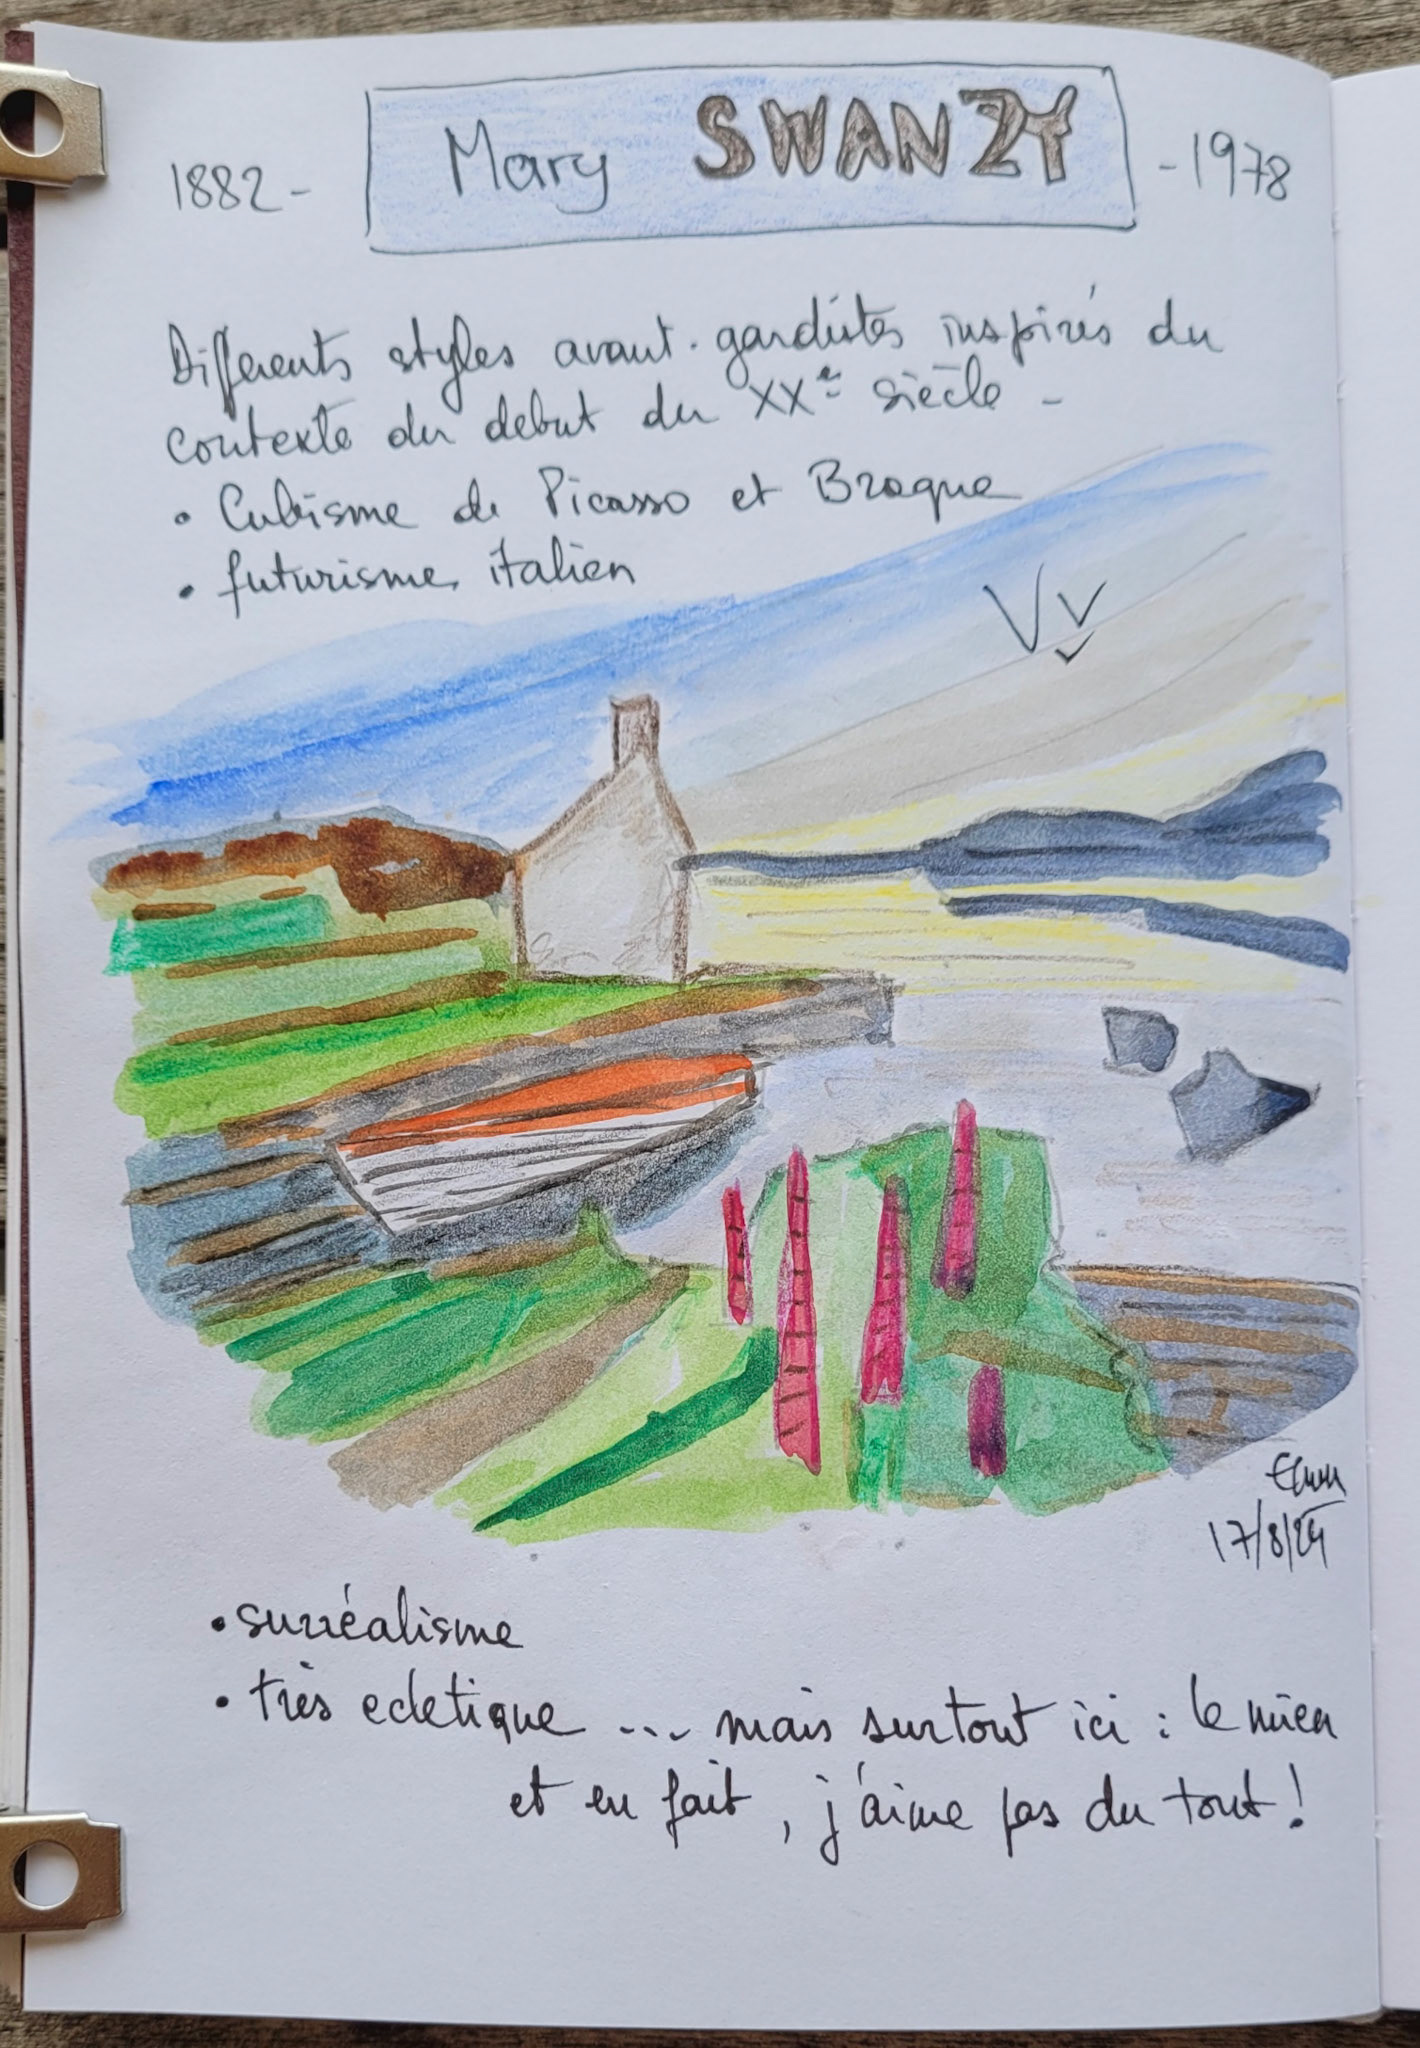 1882 - Mary SWANZY - 1978
Différents styles avant-gardistes inspirés du
contexte du début du XXe siècle -
• Cubisme de Picasso et Braque
• futurisme italien
17/8/24
• surréalisme
• très ecletique ... mais surtout ici : le mien
et en fait, j'aime pas du tout !